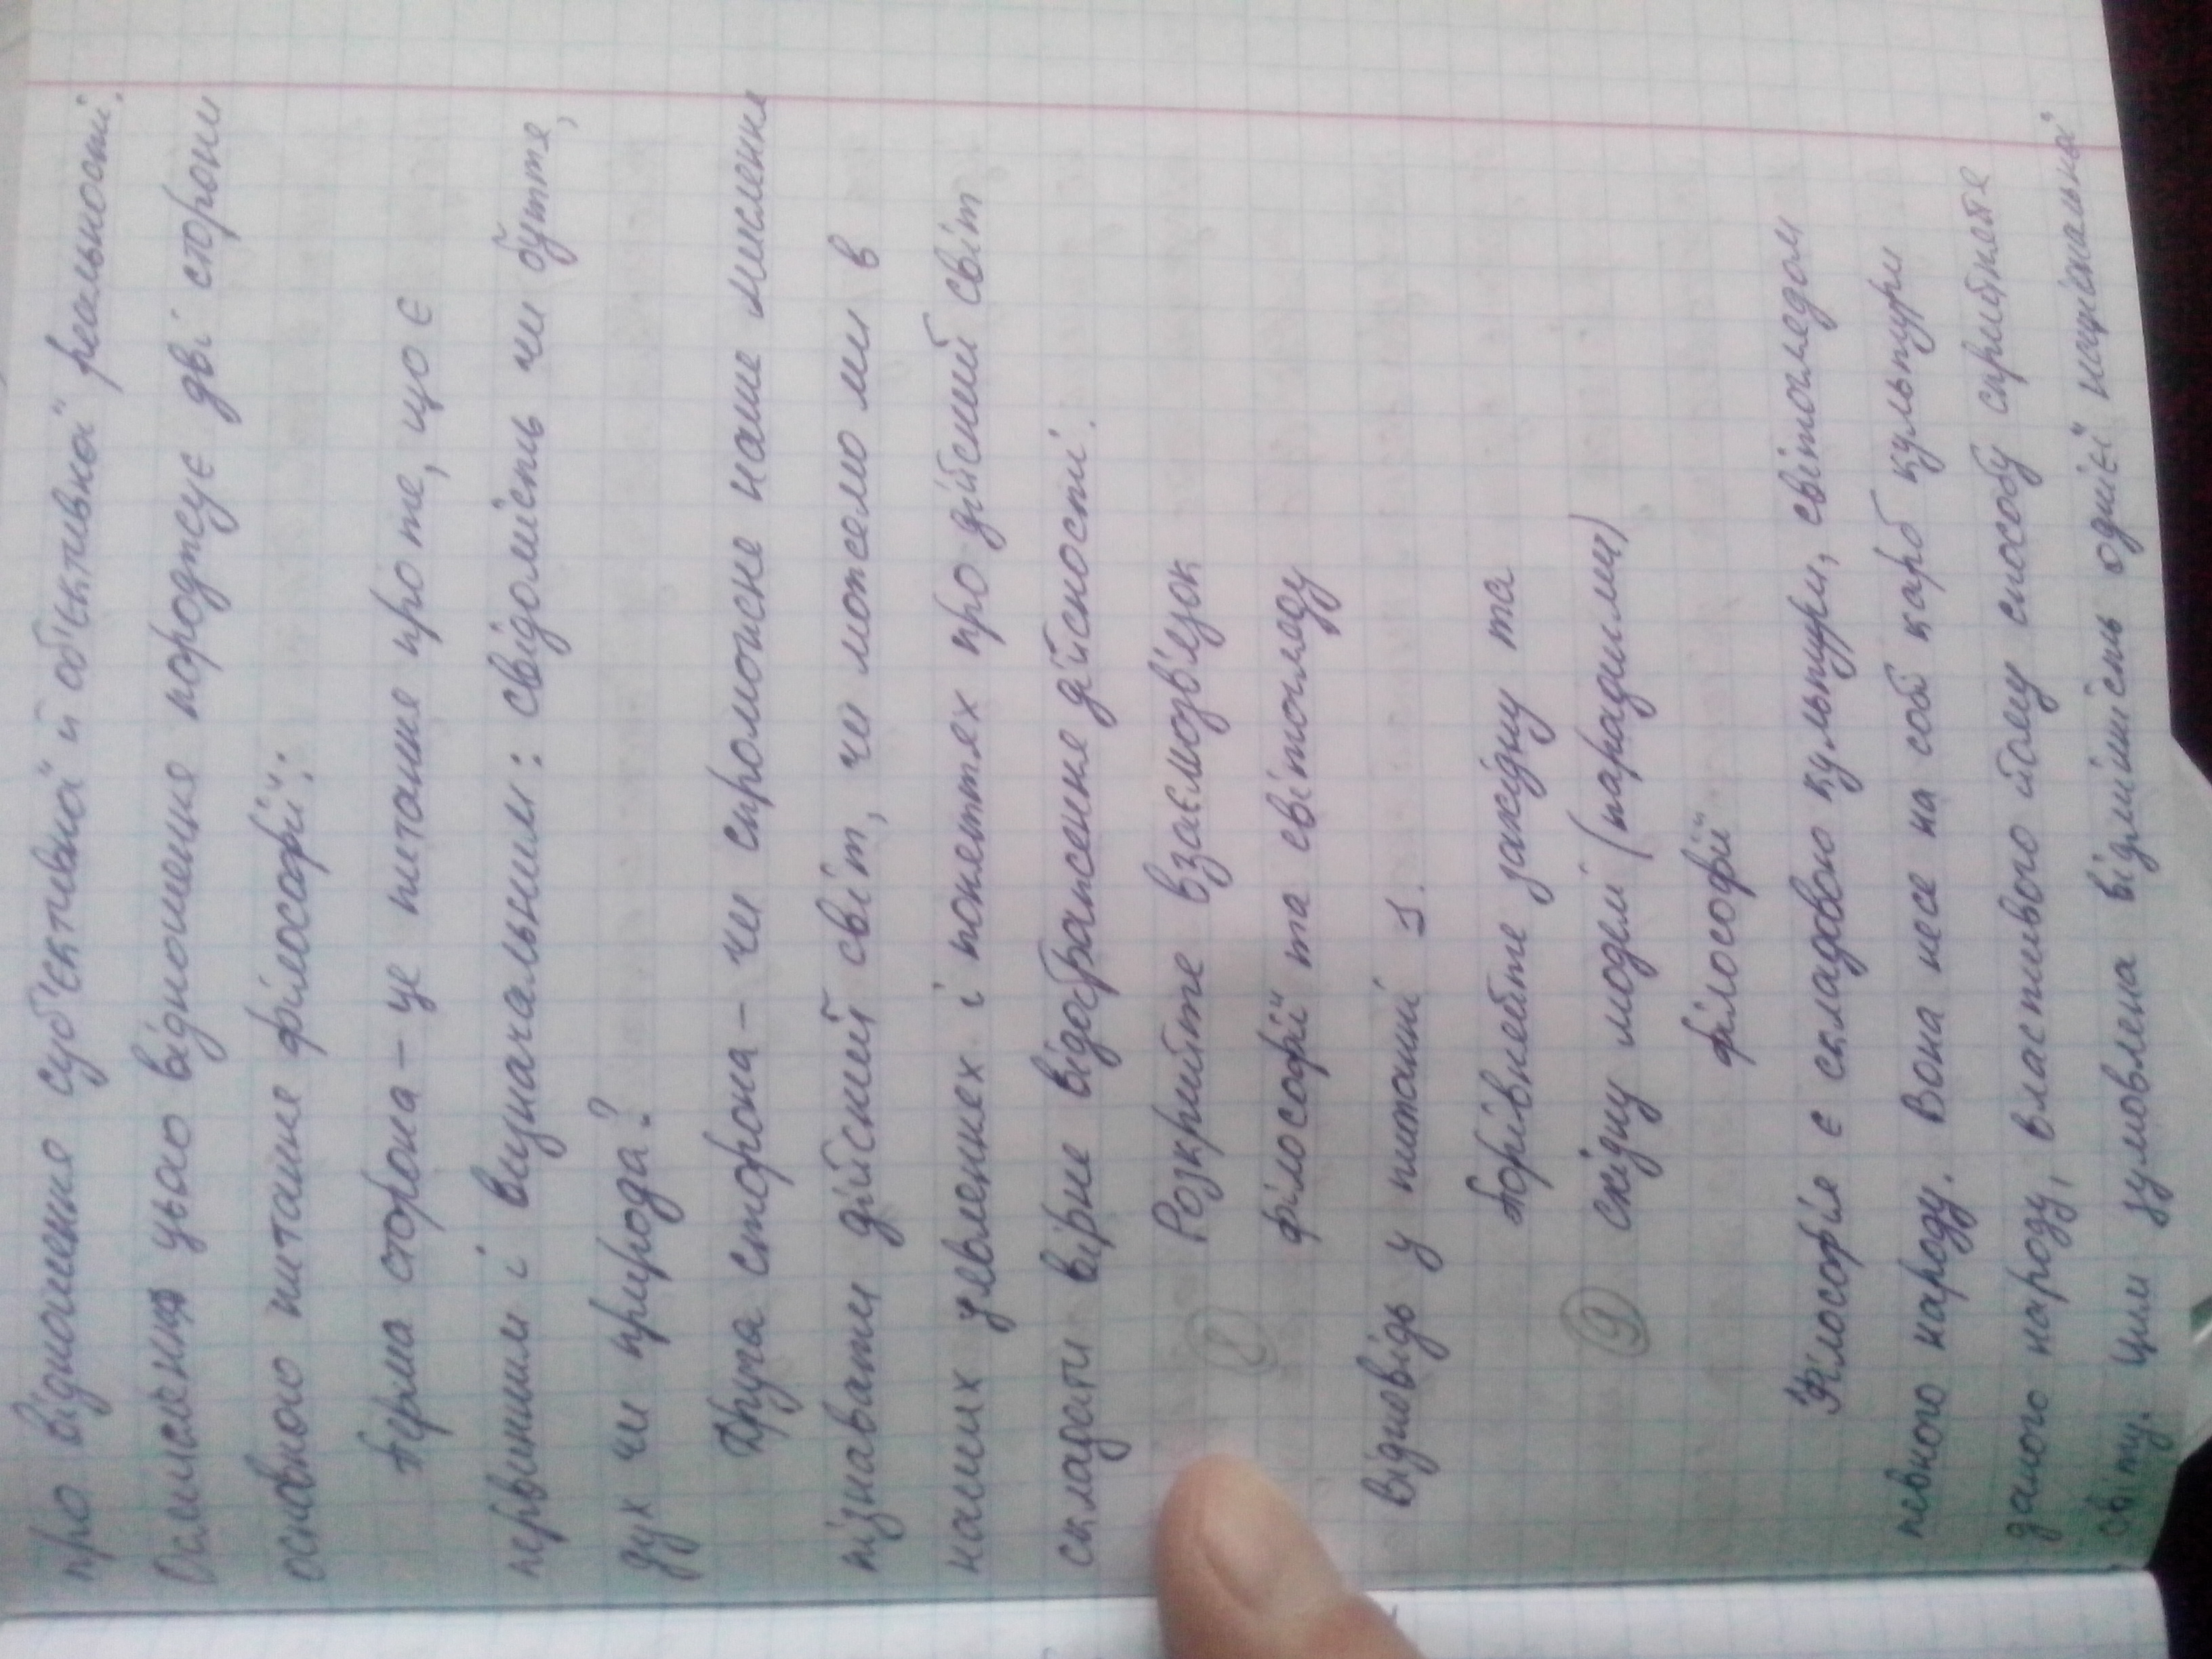 про відношення суб'єктивної й об'єктивної реальності.
Осмислення цього відношення породжує дві сторони
основного питання філософії:
Перша сторона – це питання про те, що є
первинним і визначальним: свідомість чи буття,
дух чи природа?
Друга сторона – чи спроможне наше мислення
пізнавати дійсний світ, чи можемо ми в
наших уявленнях і поняттях про дійсний світ
складати вірне відображення дійсності.
Розкрийте взаємозв'язок
8
філософії та світогляду
Відповідь у питанні 1.
Порівняйте західну та
9 східну моделі (парадигми)
філософії
Філософія є складовою культури, світоглядом
певного народу. Вона несе на собі карб культури
даного народу, властивого йому способу сприйняття
світу. Цим зумовлена відмінність однієї національної